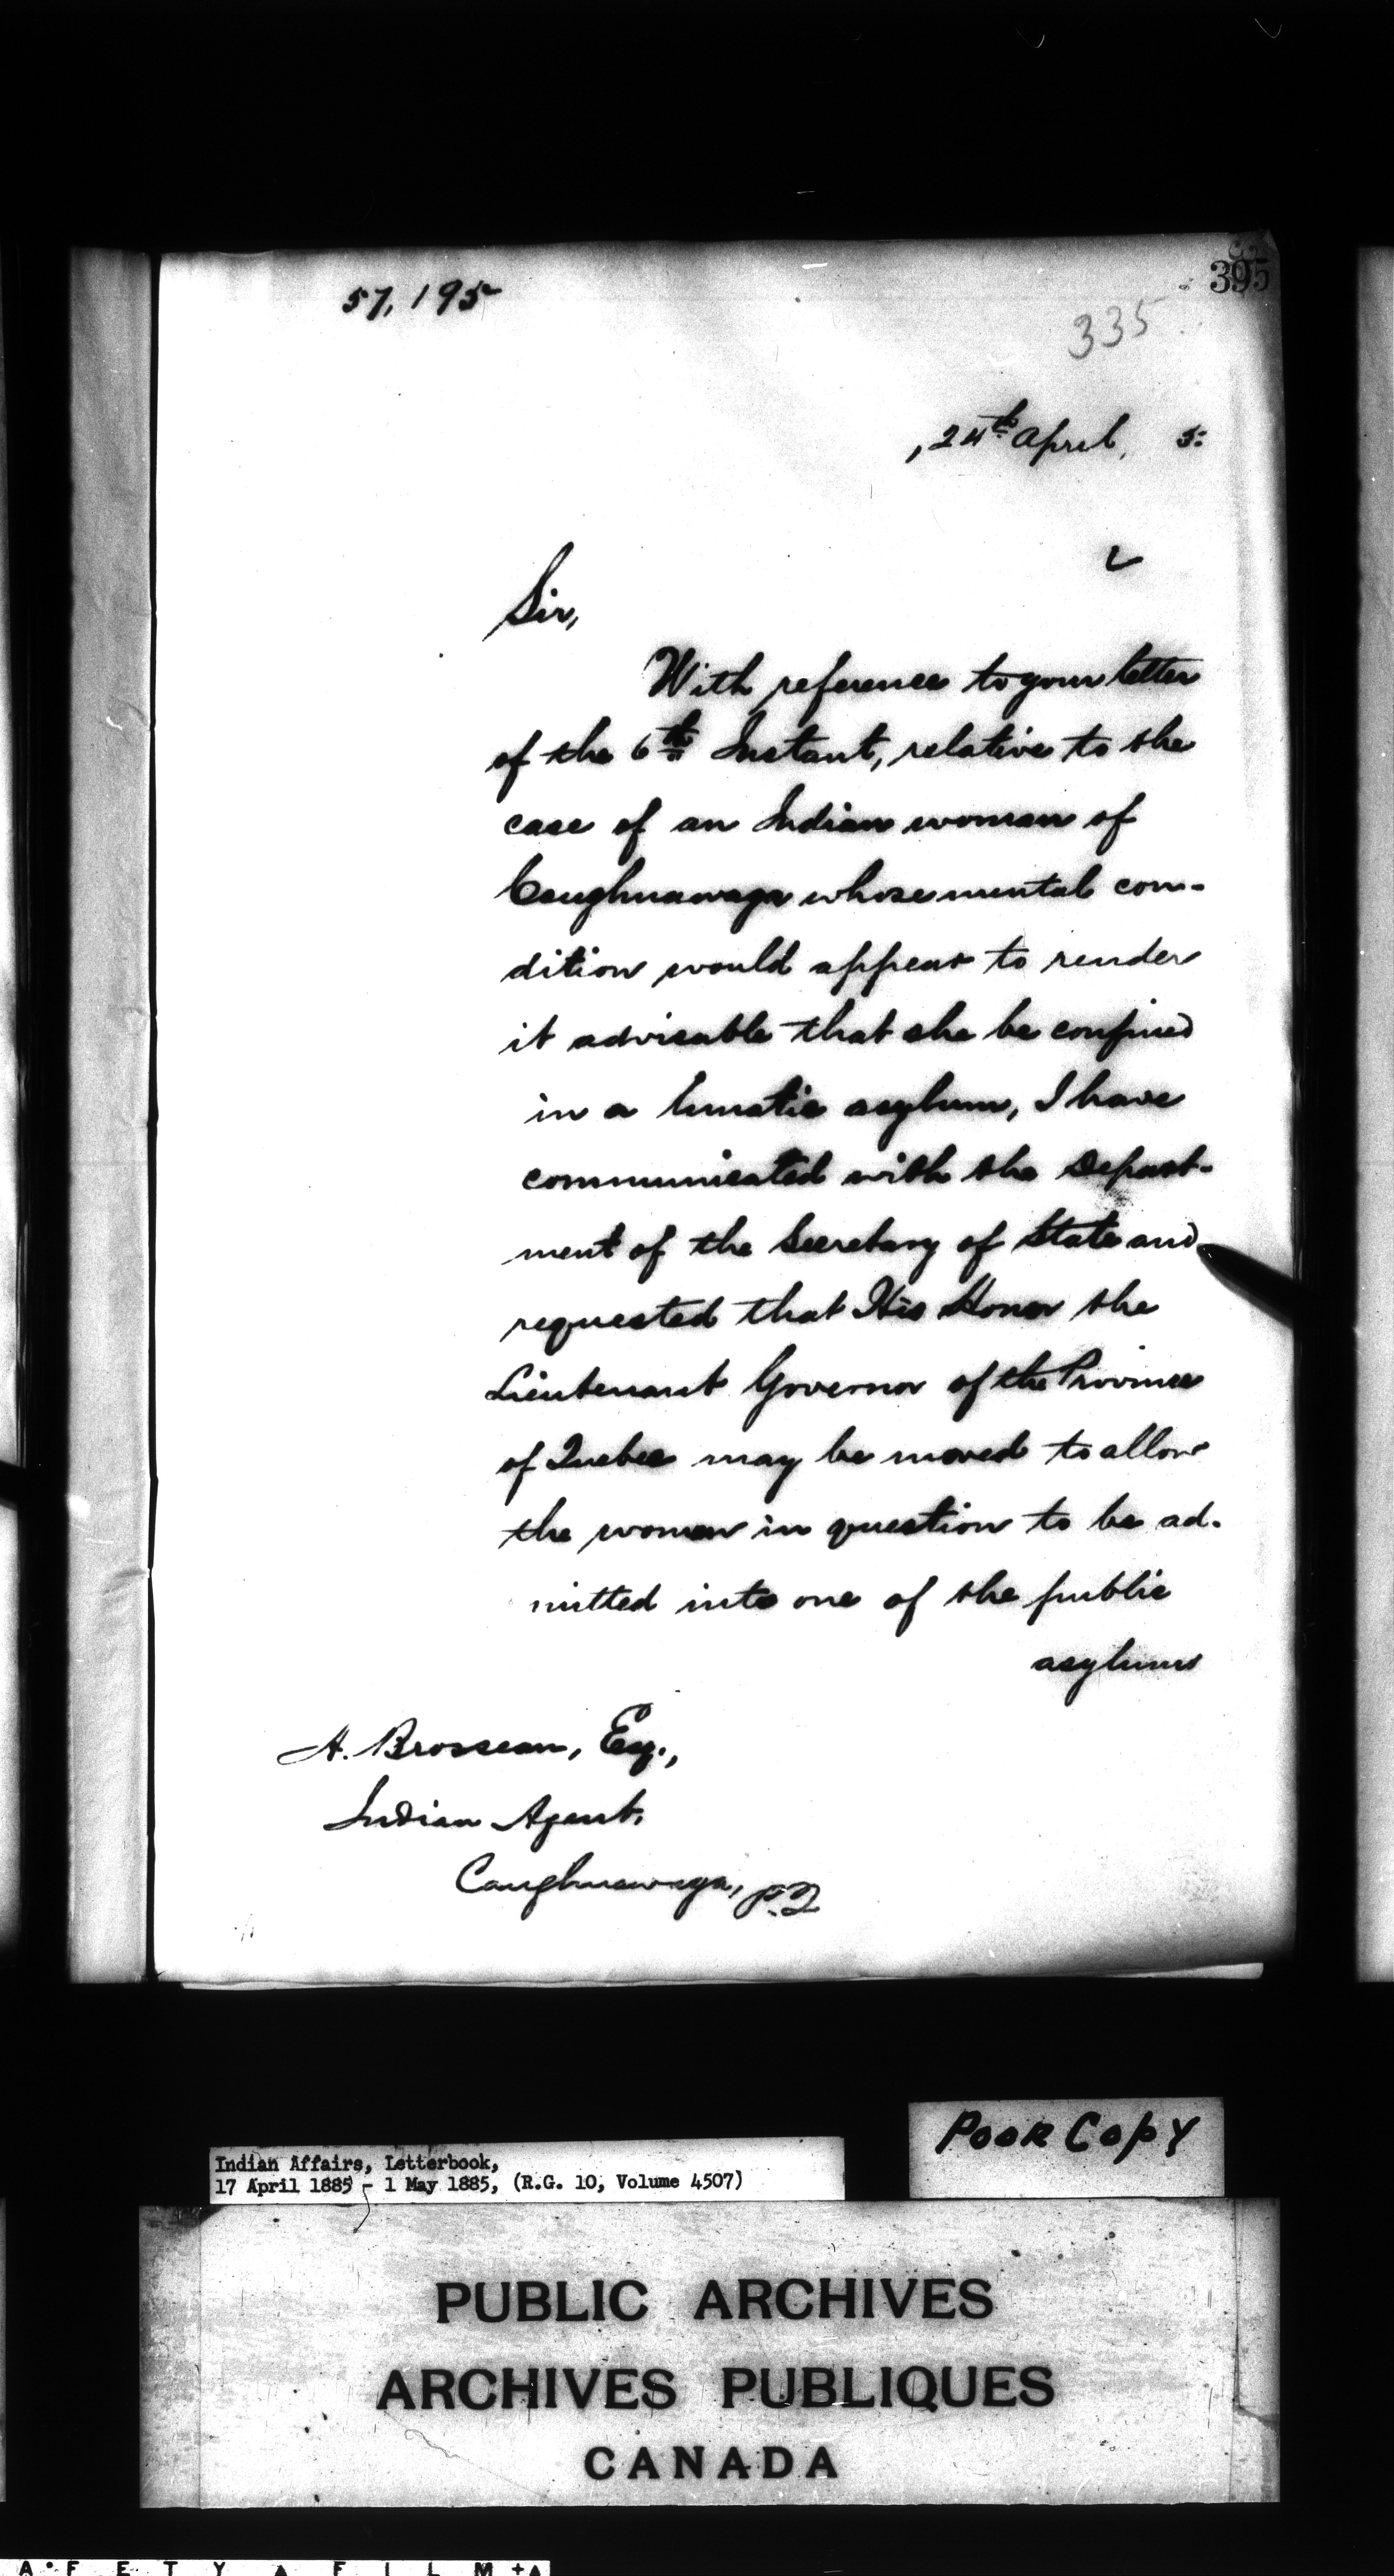 395
57,195
335
, 24th April, 5.
Sir,
With reference to your letter
of the 6th Instant, relative to the
case of an Indian woman of
Caughnawaga whose mental con-
dition would appear to render
it advisable that she be confined
in a lunatic asylum, I have
communicated with the Depart-
ment of the Secretary of State and
requested that His Honor the
Lieutenant Governor of the Province
of Quebec may be moved to allow
the woman in question to be ad-
mitted into one of the public
asylums
A. Brosseau, Esq.,
Indian Agent,
Caughnawaga, P.Q
Poor Copy
Indian Affairs, Letterbook,
17 April 1885 - 1 May 1885, (R.G. 10, Volume 4507)
PUBLIC ARCHIVES
ARCHIVES PUBLIQUES
CANADA
A F E T Y A F I L M + A